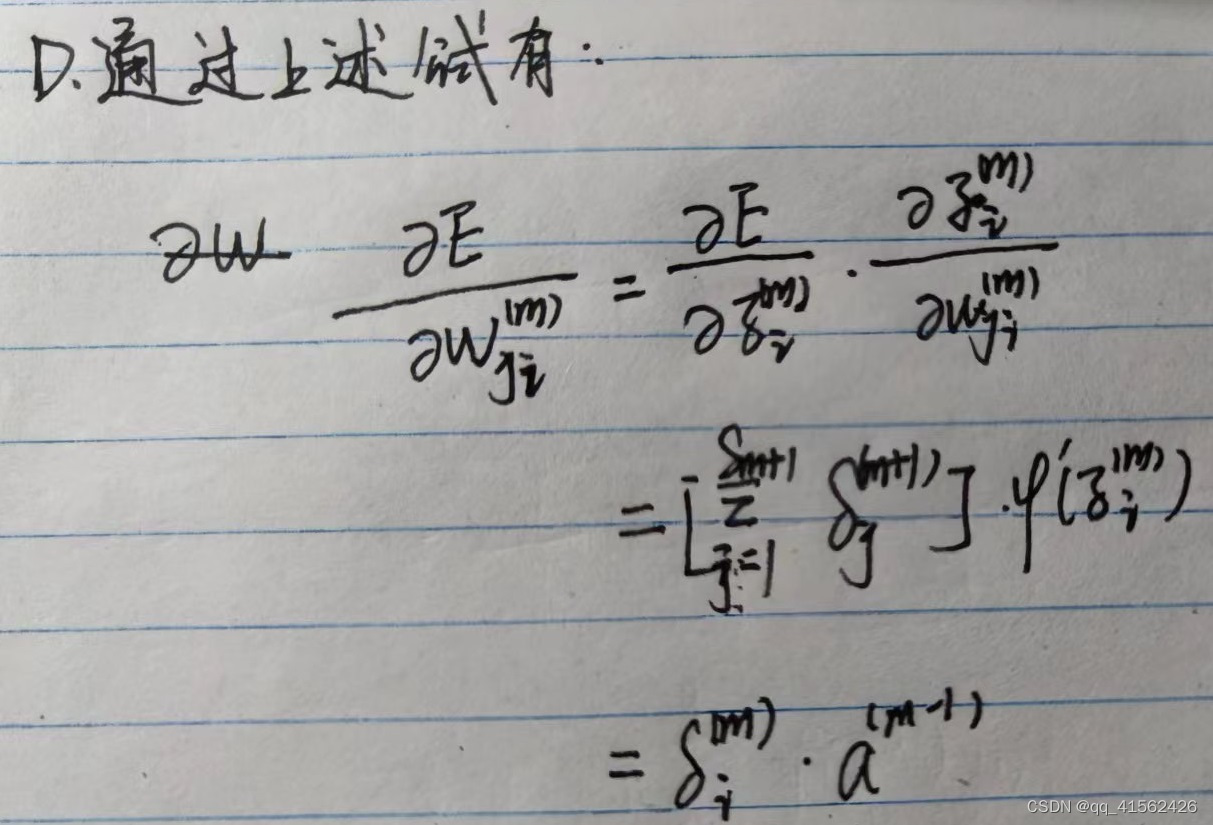 D. 通过上述 试有:
∂W ∂E/∂W_{ji}^{(m)} = ∂E/∂z_i^{(m)} · ∂z_i^{(m)}/∂w_{ji}^{(m)}
= [∑_{j=1}^{S_{m+1}} δ_j^{(m+1)}] · φ'(z_i^{(m)})
= δ_i^{(m)} · a^{(m-1)}
CSDN @qq_41562426